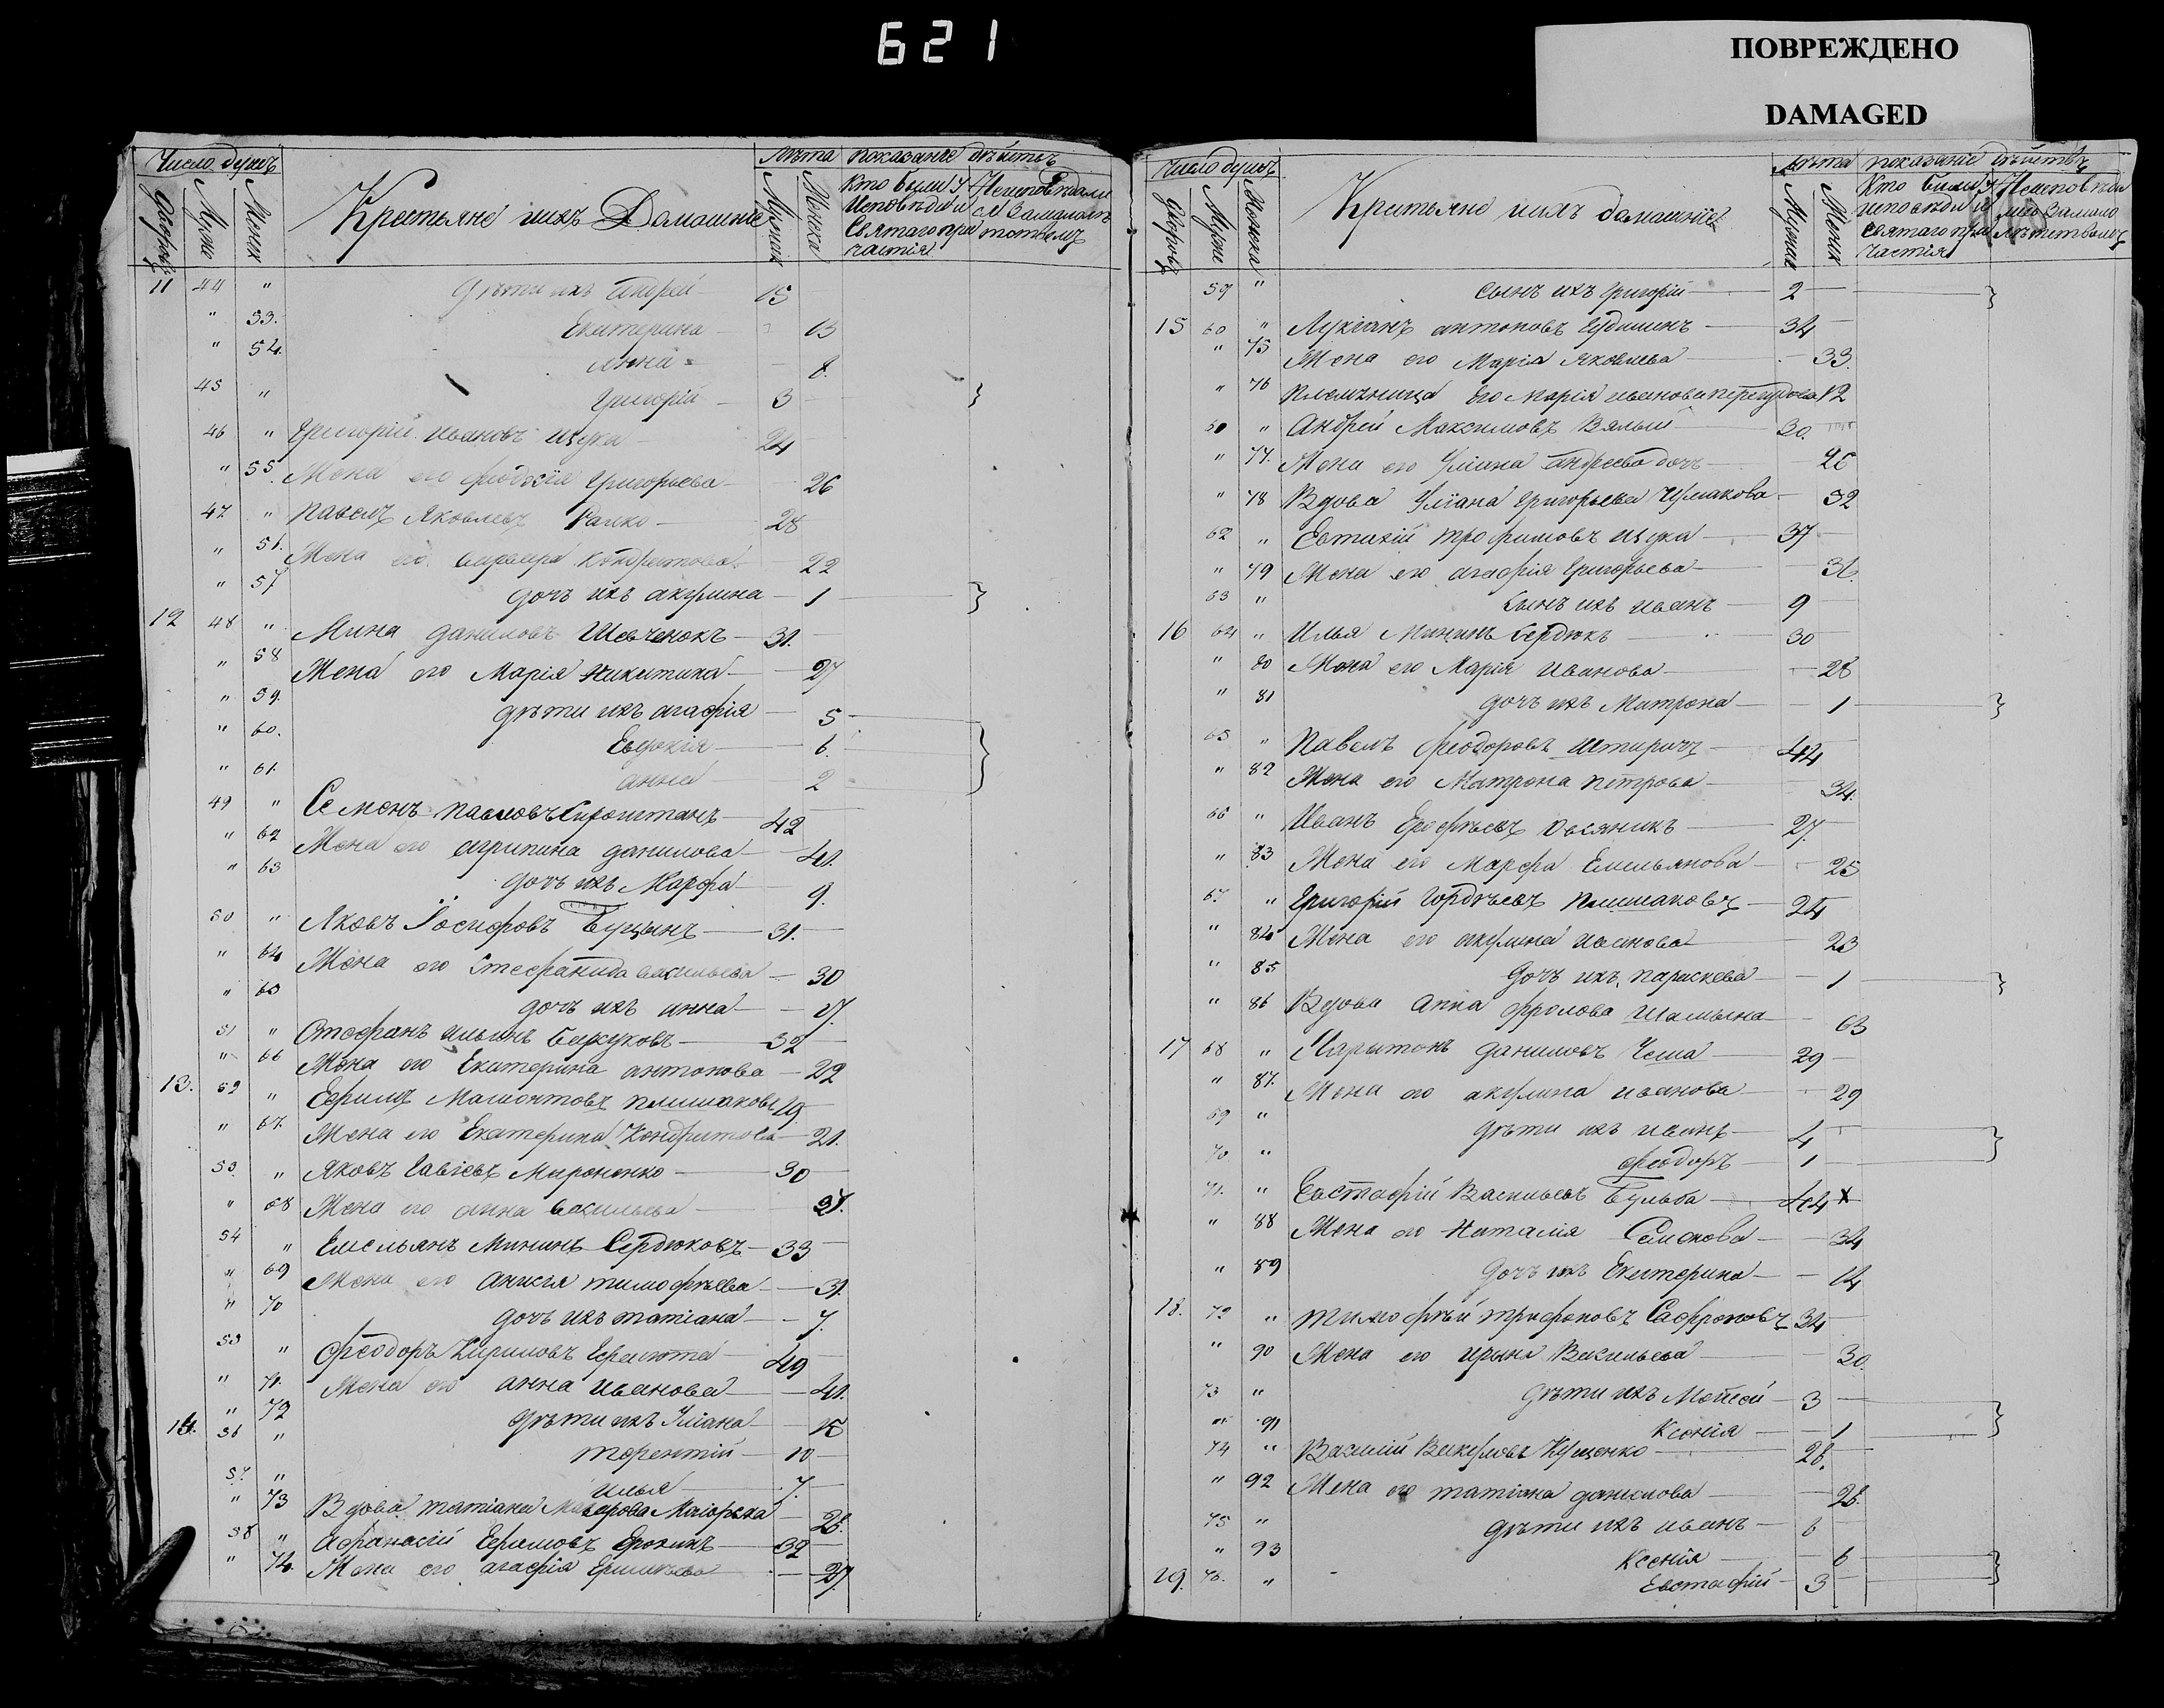 621
ПОВРЕЖДЕНО
DAMAGED
Число душъ
Дворовъ
Мужс
Женск
Крестьяне и ихъ Домашніе
Лѣта
Мужска
Женска
показаніе дѣйствъ
Кто были у Исповѣди и Святаго причастія
11 44 " Дѣти ихъ Андрей 15
" 53. Екатерина 13
" 54. Анна 8.
45 " Григорій 3
46 " Григорій Ивановъ Щука 24
" 55. Жена его Феодосія Григорьева 26
47 " Павелъ Яковлевъ 28
" 56. Жена его Кондратова 22
" 57 дочь ихъ акулина 1
12 48 " Мина даниловъ Шевченокъ 31.
" 58 Жена его Марія Никитина 27
" 59. дѣти ихъ агафія 5
" 60. Евдокія 6.
" 61. анна 2
49 " Семенъ павловъ 42
" 62 Жена его агрипина данилова 41.
" 63 дочь ихъ Марфа 9.
50 " Яковъ Іосифовъ Бущынъ 31.
" 64 Жена его Стефанида васильева 30
" 65 дочь ихъ анна
51 " Стефанъ ильинъ Барсуковъ 32
" 66 Жена его Екатерина антонова 22
13. 52 " Ефимъ Мамонтовъ плишаковъ 19
" 67. Жена его Екатерина Кондратова 21.
53 " Яковъ Савіевъ Мироненко 30
" 68 Жена его анна васильева
54 " Емельянъ Мининъ Сердюковъ 33
" 69 Жена его анисія тимофѣева 31.
" 70 дочь ихъ татіана 7.
55 " Феодоръ Кириловъ 49
" 71. Жена его анна иванова 41.
" 72 дѣти ихъ Уліана 15
14. 56 " терентій 10
57. " илья 7.
" 73 Вдова татіана 28.
58 " Афанасій Ефимовъ Ерохинъ 32
" 74. Жена его агафія 27.
Число душъ
Дворовъ
Мужс
Женска
Крестьяне и ихъ домашніе
Лѣта
Мужск
Женск
показаніе дѣйствъ
Кто были у исповѣди и святаго причастія
59 " сынъ ихъ григорій 2
15 60 " Лукіанъ антоновъ 34
" 75 Жена его Марія Яковлева 33.
" 76 племѣница его марія иванова 12
61 " Андрей Максимовъ Вялый 30.
" 77. Жена его Уліана андреева дочь 26
" 78 Вдова Уліана григорьева Чумакова 32
62 " Евтихій трофимовъ щука 37
" 79 Жена его агафія григорьева 36.
63 " сынъ ихъ иванъ 9
16 64 " Илья Мининъ Сердюкъ 30
" 80 Жена его Марія иванова 28
" 81 дочь ихъ Матрона 1
65 " Павелъ феодоровъ 44
" 82 Жена его Матрона петрова 34.
66 " Иванъ Ерофѣевъ Овсяникъ 27.
" 83 Жена его Марфа Емельянова 25
67. " Григорій Гордѣевъ плишаковъ 24
" 84 Жена его акулина иванова 23
" 85 дочь ихъ параскева 1
" 86 Вдова анна фролова Шамшна 63
17 68 " Харытонъ даниловъ Чеша 29
" 87. Жена его акулина иванова 29
69 " дѣти ихъ иванъ 4
70 " феодоръ 1
71. " Евстафій Васильевъ Бульба 44 х
" 88 Жена его Наталія Семенова 34
" 89 дочь ихъ Екатерина 14
18. 72 " тимофѣй трифоновъ Сафроновъ 34
" 90 Жена его ирына Васильева 30.
73 " дѣти ихъ Моисей 3
" 91 Ксенія 1
74 " Василій Викуловъ 28.
" 92 Жена его татіана данилова 28.
75 " дѣти ихъ иванъ 6
" 93 Ксенія 6
19. 76. " Евстафій 3